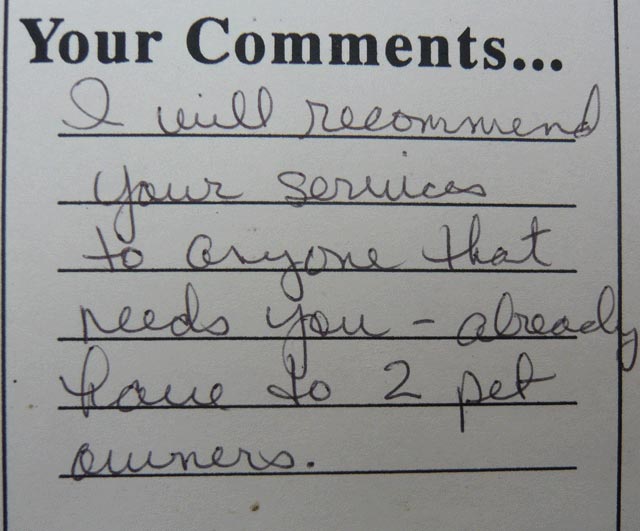 Your Comments...
I will recommend
your services
to anyone that
needs you - already
have to 2 pet
owners.